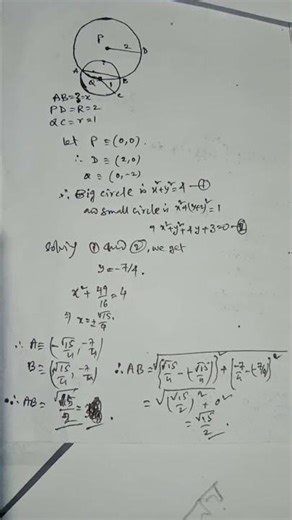 P
2
D
A
?
B
Q
1
C
AB = ? = x
PD = R = 2
QC = r = 1
Let P ≡ (0,0).
∴ D ≡ (2,0)
Q ≡ (0,-2)
∴ Big circle is x²+y²=4 —①
and small circle is x²+(y+2)²=1
⇒ x²+y²+4y+3=0 —②
Solving ① and ②, we get
y = -7/4.
x² + 49/16 = 4
⇒ x = ± √15/4
∴ A ≡ (-√15/4, -7/4)
B ≡ (√15/4, -7/4)
∴ AB = √((√15/4 - (-√15/4))² + (-7/4 - (-7/4))²)
= √((√15/2)² + 0²)
= √15/2.
∴ AB = √15/2 =